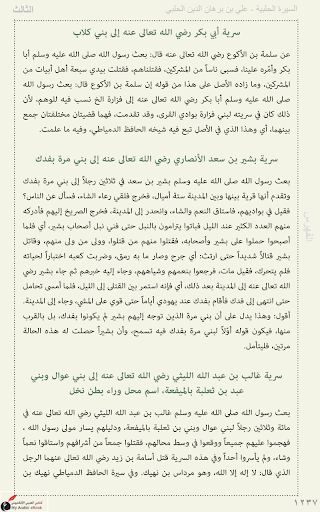 السيرة الحلبية - علي بن برهان الدين الحلبي
الثالث
سرية أبي بكر رضي الله تعالى عنه إلى بني كلاب
عن سلمة بن الأكوع رضي الله تعالى عنه قال: بعث رسول الله صلى الله عليه وسلم أبا
بكر وأمّره علينا، فسبى ناساً من المشركين، فقتلناهم، فقتلت بيدي سبعة أهل أبيات من
المشركين، وما زاده الأصل على هذا من قوله إن سلمة بن الأكوع قال: بعث رسول الله
صلى الله عليه وسلم أبا بكر رضي الله تعالى عنه إلى فزارة الخ نسب فيه للوهم، لأن
ذلك كان في سريته لبني فزارة بوادي القرى، وقد تقدمت، فهما قضيتان مختلفتان جمع
بينهما، أي وهذا الذي في الأصل تبع فيه شيخه الحافظ الدمياطي، وفيه ما علمت.
سرية بشير بن سعد الأنصاري رضي الله تعالى عنه إلى بني مرة بفدك
بعث رسول الله صلى الله عليه وسلم بشير بن سعد في ثلاثين رجلاً إلى بني مرة بفدك
وتقدم أنها قرية بينها وبين المدينة ستة أميال، فخرج فلقي رعاء الشاء، فسأل عن الناس؟
فقيل في بواديهم، فاستاق النعم والشاء، وانحدر إلى المدينة، فخرج الصريخ إليهم فأدركه
منهم العدد الكثير عند الليل فباتوا يترامون بالنبل حتى فني نبل أصحاب بشير، أي فلما
أصبحوا حملوا على بشير وأصحابه، فقتلوا منهم من قتلوا، وولى من ولى منهم، وقاتل
بشير قتالاً شديداً حتى ارتث: أي جرح وصار ما به رمق، وضربت كعبه اختباراً لحياته
فلم يتحرك، فقيل مات، فرجعوا بنعمهم وشياههم، وجاء إليه خبرهم ثم جاء بشير رضي
الله تعالى عنه إلى المدينة بعد ذلك، أي فإنه استمر بين القتلى إلى الليل، فلما أمسى تحامل
حتى انتهى إلى فدك فأقام بفدك عند يهودي أياماً حتى قوي على المشي، وجاء إلى المدينة.
أقول: وهذا يدل على أن بني مرة الذين توجه إليهم بشير لم يكونوا بفدك، بل بالقرب
منها، فيكون قوله أوّلاً لبني مرة بفدك فيه تسمح، وأن بشيراً حصلت له هذه الحالة
مرتين، فليتأمل.
سرية غالب بن عبد الله الليثي رضي الله تعالى عنه إلى بني عوال وبني
عبد بن ثعلبة بالميفعة، اسم محل وراء بطن نخل
بعث رسول الله صلى الله عليه وسلم غالب بن عبد الله الليثي رضي الله تعالى عنه في
مائة وثلاثين رجلاً لبني عوال وبني عبد بن ثعلبة بالميفعة، ودليلهم يسار مولى رسول الله ،
فهجموا عليهم جميعاً ووقعوا في وسط محالهم، فقتلوا جمعاً من أشرافهم واستاقوا نعماً
وشاء، ولم يأسروا أحداً وفي هذه السرية قتل أسامة بن زيد رضي الله تعالى عنهما الرجل
الذي قال: لا إله إلا الله، وهو مرداس بن نهيك. وفي سيرة الحافظ الدمياطي نهيك بن
١٢٣٧
الفهرس
My Arabic eBook